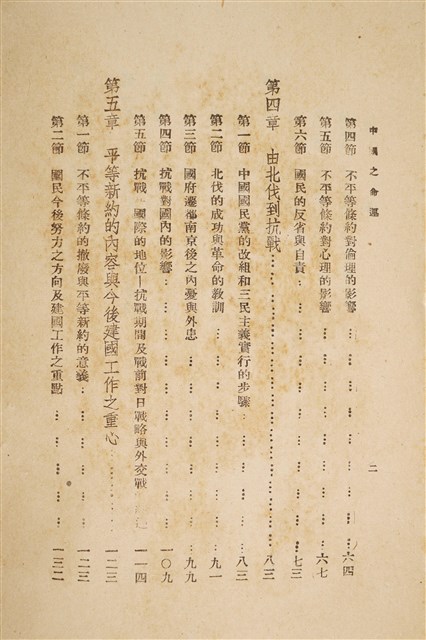 中國之命運
二
第四節 不平等條約對倫理的影響 … … … … … … 六四
第五節 不平等條約對心理的影響 … … … … … … 六七
第六節 國民的反省與自責 … … … … … … … … 七三
第四章 由北伐到抗戰 … … … … … … … … … 八三
第一節 中國國民黨的改組和三民主義實行的步驟 … … … … 八三
第二節 北伐的成功與革命的教訓 … … … … … … … 九一
第三節 國府遷都南京後之內憂與外患 … … … … … … 九九
第四節 抗戰對國內的影響 … … … … … … … … 一〇九
第五節 抗戰 國際的地位—抗戰期間及戰前對日戰略與外交戰 一一四
第五章 平等新約的內容與今後建國工作之重心 … … … … 一二三
第一節 不平等條約的撤廢與平等新約的意義 … … … … … 一二三
第二節 國民今後努力之方向及建國工作之重點 … … … … … 一三二